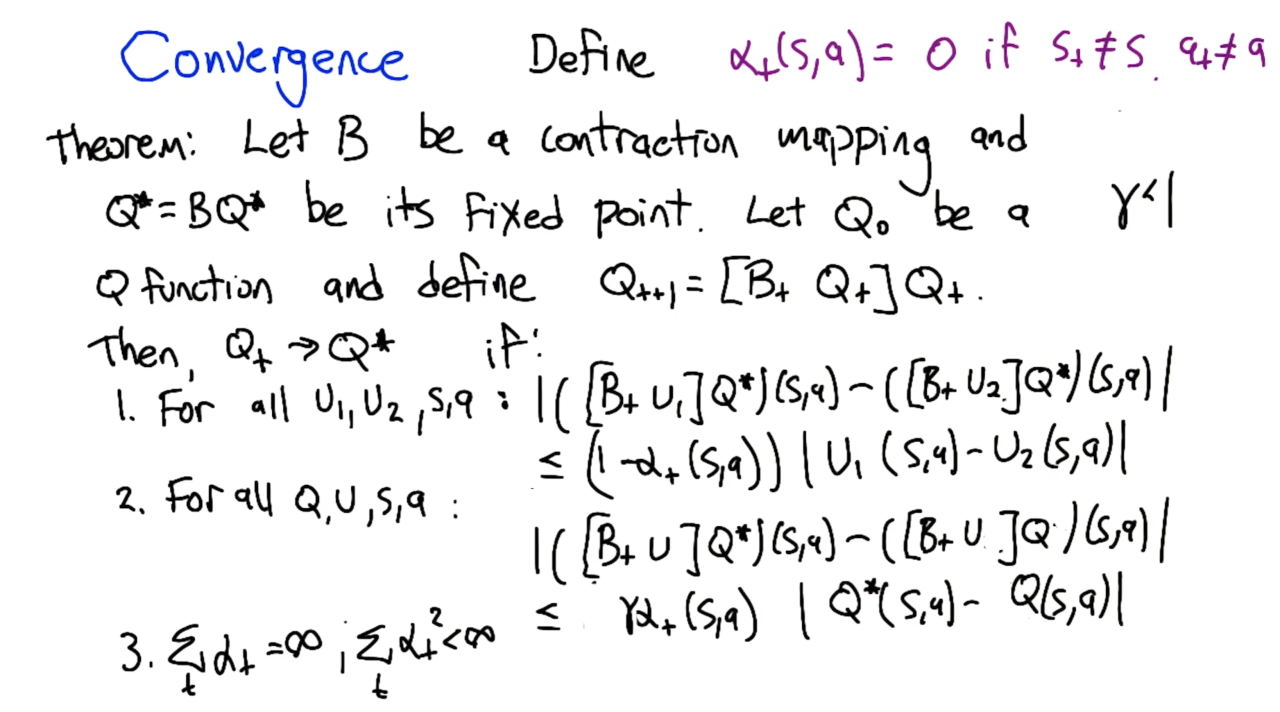 Convergence Define α_t(s,a) = 0 if s_t≠s, a_t≠a
Theorem: Let B be a contraction mapping and
Q* = BQ* be its fixed point. Let Q_0 be a γ<1
Q function and define Q_{t+1} = [B_t Q_t] Q_t.
Then, Q_t → Q* if:
1. For all U_1, U_2, s, a : |([B_t U_1] Q*)(s,a) − ([B_t U_2] Q*)(s,a)|
≤ (1−α_t(s,a)) |U_1(s,a) − U_2(s,a)|
2. For all Q, U, s, a :
|([B_t U] Q*)(s,a) − ([B_t U] Q)(s,a)|
≤ γα_t(s,a) |Q*(s,a) − Q(s,a)|
3. Σ_t α_t = ∞ ; Σ_t α_t² < ∞